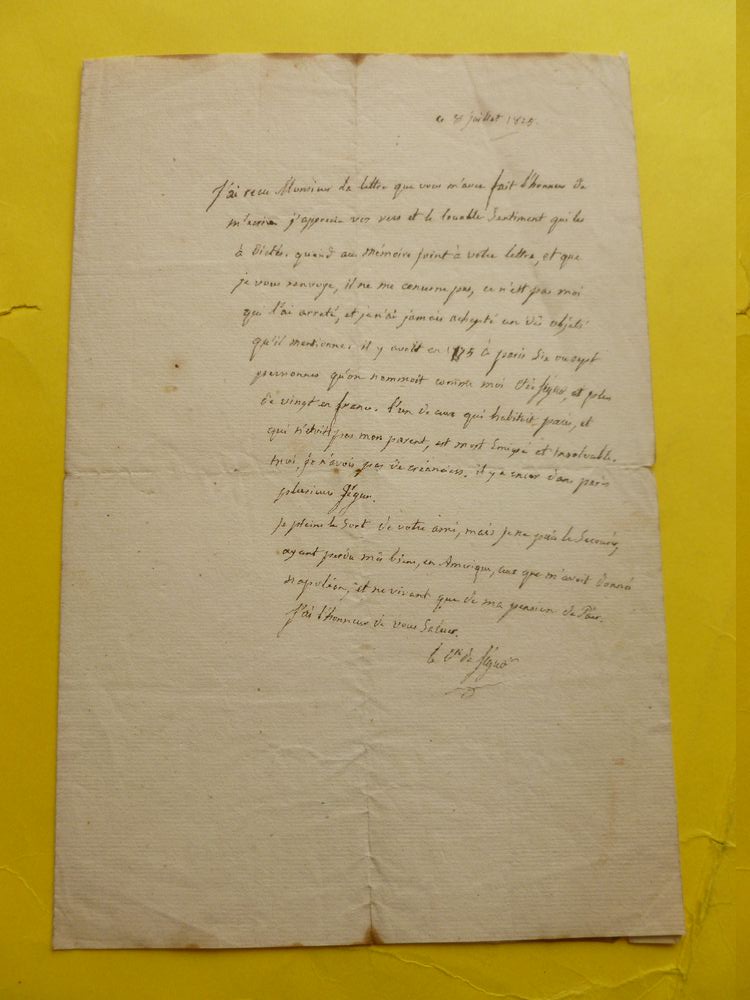 ce 8 juillet 1825.
J'ai recu Monsieur la lettre que vous m'avez fait l'honneur de
m'ecrire j'apprecie vos vers et le louable Sentiment qui les
à dictés. quand au mémoire joint à votre lettre, et que
je vous renvoye, il ne me concerne pas, ce n'est pas moi
qui l'ai arreté, et je n'ai jamais achepté un des objets
qu'il mentionne: il y avoit en 1775 à paris Six ou sept
personnes qu'on nommoit comme moi de Ségur, et plus
de vingt en france. l'un de ceux qui habitoit paris, et
qui n'étoit pas mon parent, est mort Emigré et insolvable.
moi, je n'avois pas de créanciers. il y a encor dans paris
plusieurs Ségur.
Je plains le Sort de votre ami, mais je ne puis le Secourir,
ayant perdu mes biens, en Amerique, ceux que m'avoit donnés
napoléon, et ne vivant que de ma pension de Pair.
J'ai l'honneur de vous Saluer.
le cte de Ségur